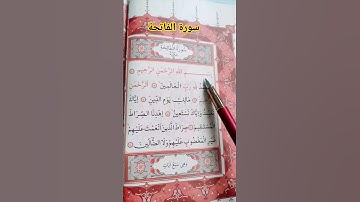 سورة الفاتحة
سُورَةُ الفَاتِحَةِ
اللَّهِ الرَّحْمَٰنِ الرَّحِيمِ
رَبِّ الْعَالَمِينَ الرَّحْمَٰنِ
مَالِكِ يَوْمِ الدِّينِ إِيَّاكَ
وَإِيَّاكَ نَسْتَعِينُ اهْدِنَا الصِّرَاطَ
صِرَاطَ الَّذِينَ أَنْعَمْتَ عَلَيْهِمْ
غَيْرِ الْمَغْضُوبِ عَلَيْهِمْ وَلَا الضَّالِّينَ
وهي سبع آيات